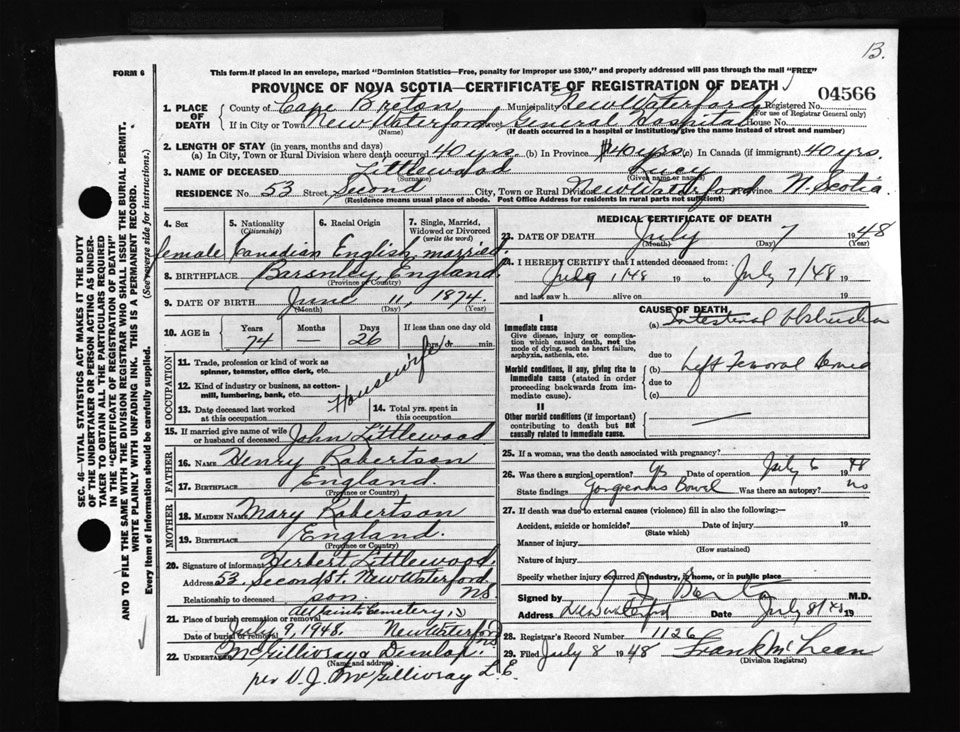 B.
FORM 6
This form if placed in an envelope, marked "Dominion Statistics—Free, penalty for improper use $300," and properly addressed will pass through the mail "FREE"
PROVINCE OF NOVA SCOTIA—CERTIFICATE OF REGISTRATION OF DEATH
04566
1. PLACE OF DEATH County of Cape Breton Municipality of New Waterford Registered No.
(For use of Registrar General only)
If in City or Town New Waterford Street General Hospital House No.
(Name) (If death occurred in a hospital or institution, give the name instead of street and number)
2. LENGTH OF STAY (in years, months and days)
(a) In City, Town or Rural Division where death occurred 40 yrs. (b) In Province 40 yrs (c) In Canada (if immigrant) 40 yrs.
3. NAME OF DECEASED Littlewood Lucy
(Surname) (Given name or names)
RESIDENCE No. 53 Street Second City, Town or Rural Division New Waterford Province N. Scotia
(Residence means usual place of abode. Post Office Address for residents in rural parts not sufficient)
4. Sex 5. Nationality (Citizenship) 6. Racial Origin 7. Single, Married, Widowed or Divorced (write the word)
female Canadian English married.
8. BIRTHPLACE Barsnley, England
(Province or Country)
9. DATE OF BIRTH June 11, 1874.
(Month) (Day) (Year)
10. AGE in Years Months Days If less than one day old
74 — 26 hrs. or min.
OCCUPATION
11. Trade, profession or kind of work as spinner, teamster, office clerk, etc.
12. Kind of industry or business, as cotton-mill, lumbering, bank, etc.
Housewife
13. Date deceased last worked at this occupation
14. Total yrs. spent in this occupation
15. If married give name of wife or husband of deceased John Littlewood
FATHER
16. NAME Henry Robertson
17. BIRTHPLACE England.
(Province or Country)
MOTHER
18. MAIDEN NAME Mary Robertson
19. BIRTHPLACE England.
(Province or Country)
20. Signature of informant Herbert Littlewood,
Address 53. Second St. New Waterford, NS
Relationship to deceased son.
21. Place of burial cremation or removal All Saints Cemetery,
Date of burial or removal July 9, 1948. New Waterford NS
22. UNDERTAKER McGillivray & Dunlop.
(Name and address)
per D. J. McGillivray L. E.
MEDICAL CERTIFICATE OF DEATH
23. DATE OF DEATH July 7 1948
(Month) (Day) (Year)
I HEREBY CERTIFY that I attended deceased from:
July 1/48 19 to July 7/48 19
and last saw h alive on 19
CAUSE OF DEATH
I
Immediate cause
Give disease, injury or complication which caused death, not the mode of dying, such as heart failure, asphyxia, asthenia, etc.
(a) Intestinal Obstruction
due to
Morbid conditions, if any, giving rise to immediate cause (stated in order proceeding backwards from immediate cause).
(b) Left Femoral Hernia
due to
(c)
II
Other morbid conditions (if important) contributing to death but not causally related to immediate cause.
—
25. If a woman, was the death associated with pregnancy?
26. Was there a surgical operation? Yes Date of operation July 6 1948
State findings Gangrenous Bowel Was there an autopsy? no
27. If death was due to external causes (violence) fill in also the following:—
Accident, suicide or homicide? Date of injury 19
(State which)
Manner of injury
(How sustained)
Nature of injury
Specify whether injury occurred in industry, in home, or in public place
Signed by M.D.
Address New Waterford Date July 8/48 19
28. Registrar's Record Number 1126
29. Filed July 8 1948 Frank McLean
(Division Registrar)
SEC. 46—VITAL STATISTICS ACT MAKES IT THE DUTY
OF THE UNDERTAKER OR PERSON ACTING AS UNDER-
TAKER TO OBTAIN ALL THE PARTICULARS REQUIRED
IN THE "CERTIFICATE OF REGISTRATION OF DEATH"
AND TO FILE THE SAME WITH THE DIVISION REGISTRAR WHO SHALL ISSUE THE BURIAL PERMIT.
WRITE PLAINLY WITH UNFADING INK. THIS IS A PERMANENT RECORD.
Every item of information should be carefully supplied. (See reverse side for instructions.)